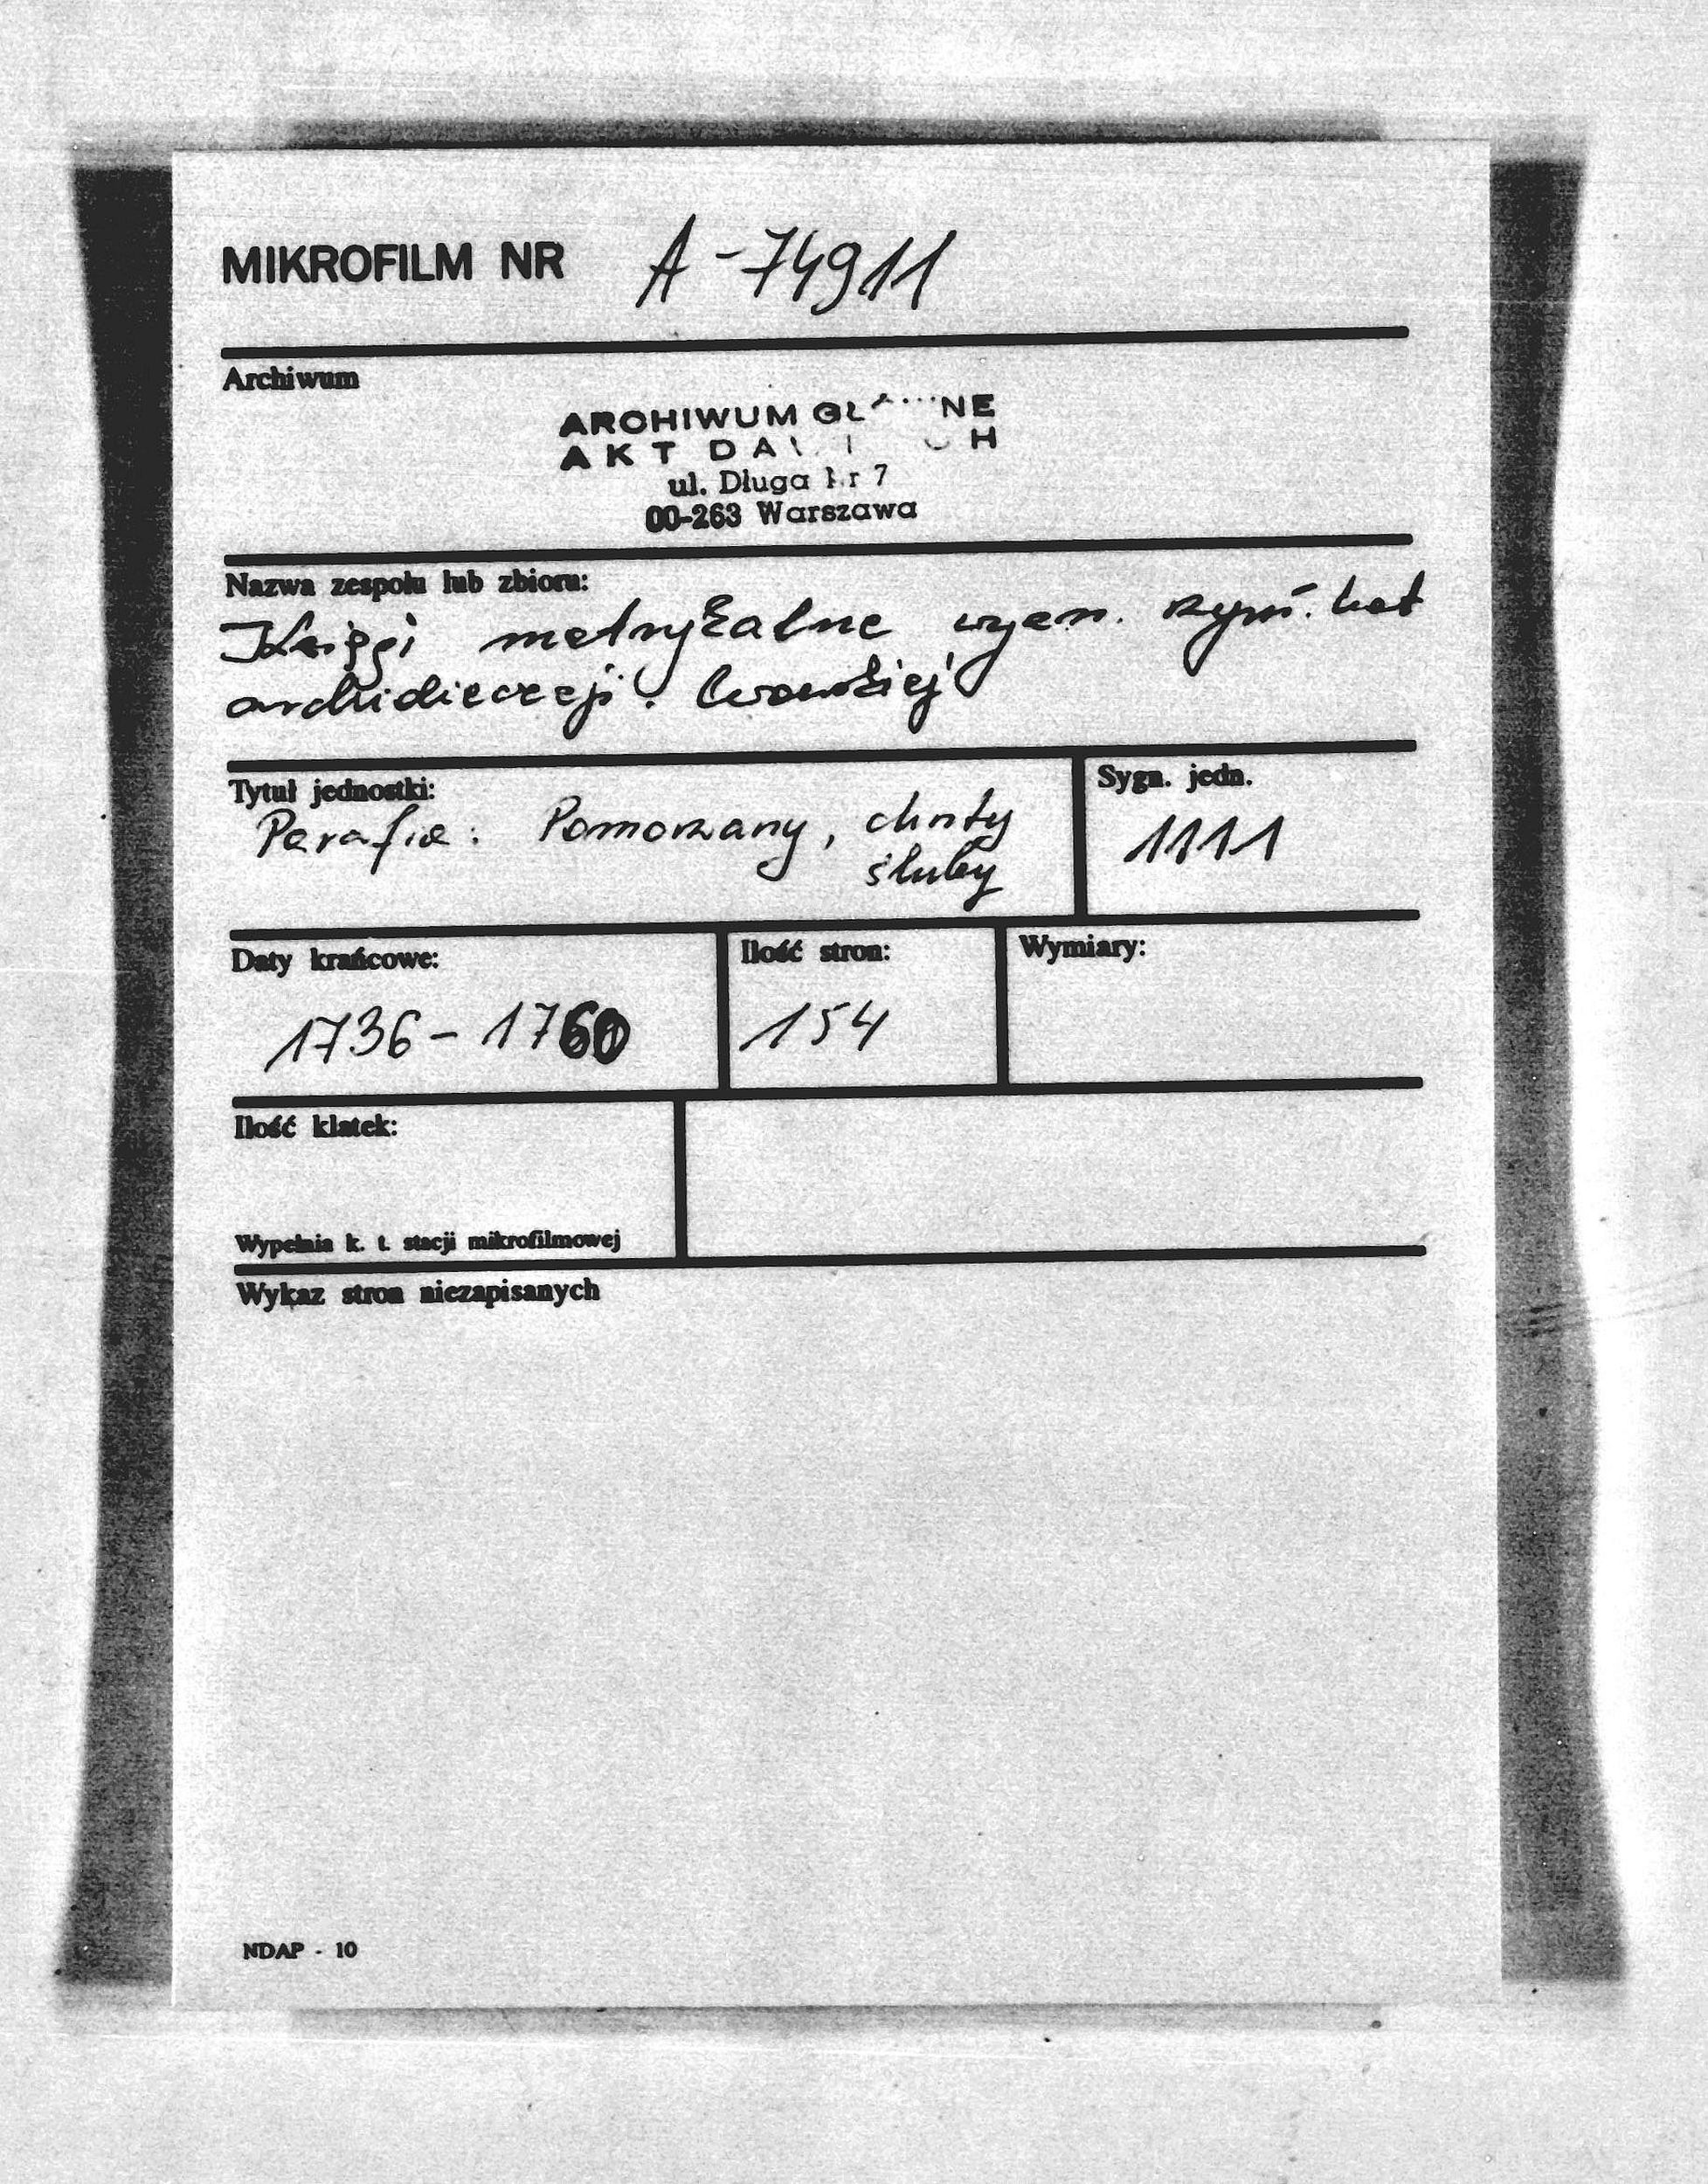 MIKROFILM NR A-74911
Archiwum
ARCHIWUM GŁ NE
AKT DA H
ul. Długa Nr 7
00-263 Warszawa
Nazwa zespołu lub zbioru:
Księgi metrykalne wyzn. rzym. kat
archidiecezji. lwowskiej
Tytuł jednostki:
Sygn. jedn.
Parafia: Pomorzany, chrzty
śluby
1111
Daty krańcowe:
Ilość stron:
Wymiary:
1736 - 1760
154
Ilość klatek:
Wypełnia k. t. stacji mikrofilmowej
Wykaz stron niezapisanych
NDAP - 10